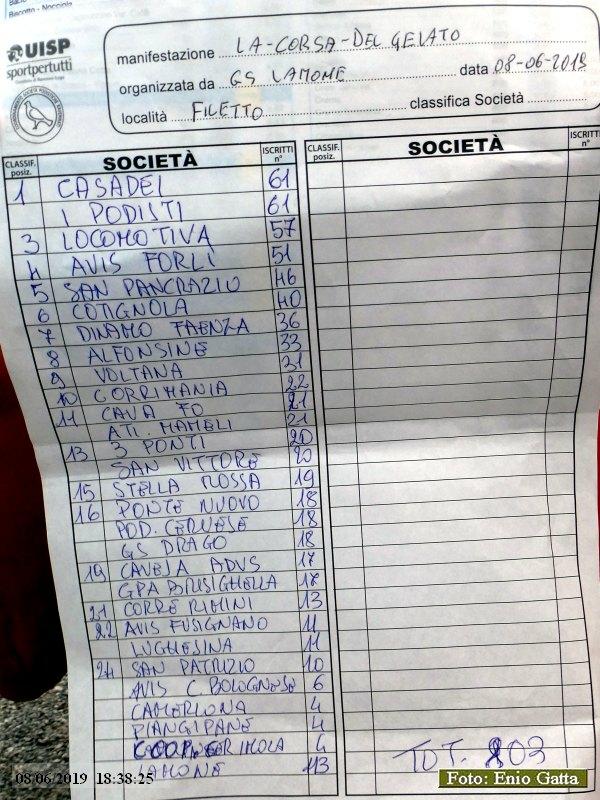 Biscotto - Nocciola
UISP
sportpertutti
manifestazione LA-CORSA-DEL GELATO
organizzata da GS LAMONE data 08-06-2019
località FILETTO classifica Società
CLASSIF. posiz. SOCIETÀ ISCRITTI n° CLASSIF. posiz. SOCIETÀ ISCRITTI n°
1 CASADEI 61
I PODISTI 61
3 LOCOMOTIVA 57
4 AVIS FORLI 51
5 SAN PANCRAZIO 46
6 COTIGNOLA 40
7 DINAMO FAENZA 36
8 ALFONSINE 33
9 VOLTANA 31
10 CORRIMANIA 22
11 CAVA FO 21
ATL. MAMELI 21
13 3 PONTI 20
SAN VITTORE 20
15 STELLA ROSSA 19
16 PONTE NUOVO 18
POD. CERVESE 18
GS DRAGO 18
19 CAVEJA ADVS 17
GPA BRISIGHELLA 17
21 CORRE RIMINI 13
22 AVIS FUSIGNANO 11
LUGHESINA 11
24 SAN PATRIZIO 10
AVIS C. BOLOGNESE 6
CAMERLONA 4
PIANGIPANE 4
IMOLA 4
LAMONE 113
TOT. 803
08/06/2019 18:38:25
Foto: Enio Gatta